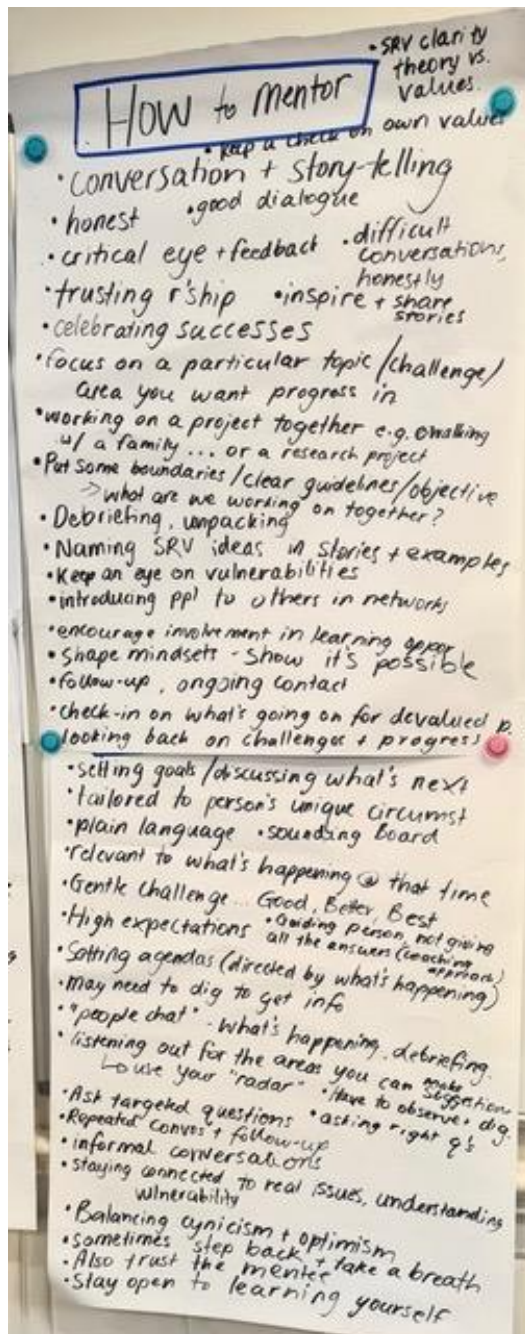 • SRV clarity
theory vs.
values.
HOW to mentor
• keep a check on own values
• conversation + story-telling
• honest • good dialogue
• critical eye + feedback • difficult
conversations,
honestly
• trusting r'ship • inspire + share
stories
• celebrating successes
• focus on a particular topic / challenge /
area you want progress in
• working on a project together e.g. walking
w/ a family ... or a research project
• Put some boundaries / clear guidelines / objective
→ what are we working on together?
• Debriefing, unpacking
• Naming SRV ideas in stories + examples
• Keep an eye on vulnerabilities
• introducing ppl to others in networks
• encourage involvement in learning oppor
• shape mindsets - show it's possible
• follow-up, ongoing contact
• check-in on what's going on for devalued p.
• looking back on challenges + progress
• setting goals / discussing what's next
• tailored to person's unique circumst
• plain language • sounding board
• relevant to what's happening @ that time
• Gentle challenge ... Good, Better, Best
• High expectations • Guiding person, not giving
all the answers (coaching
approach)
• Setting agendas (directed by what's happening)
• may need to dig to get info
• "people chat" - what's happening, debriefing.
• listening out for the areas you can make
suggestions
↳ use your "radar" • Have to observe + dig.
• Ask targeted questions • asking right q's
• Repeated convos + follow-up
• informal conversations
• staying connected to real issues, understanding
vulnerability
• Balancing cynicism + optimism
• sometimes step back + take a breath
• Also trust the mentee
• Stay open to learning yourself